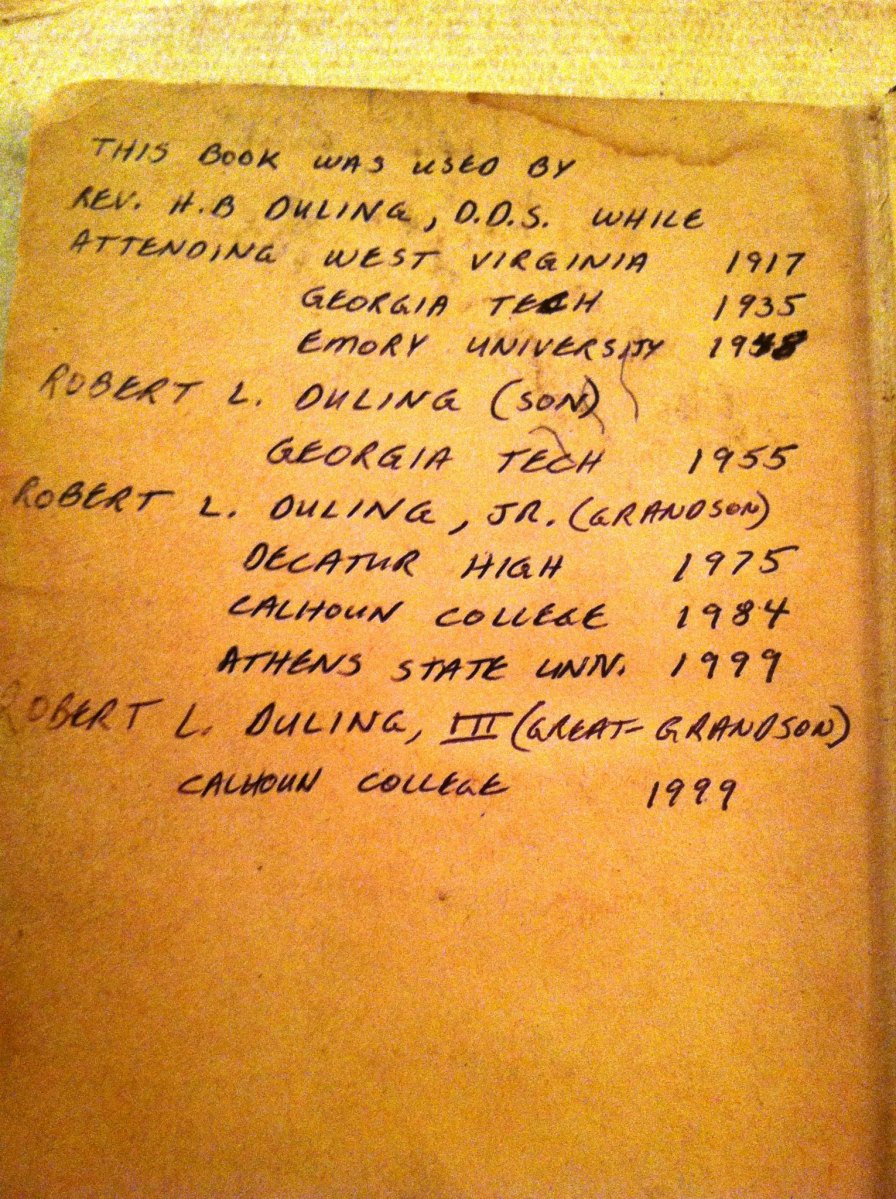 THIS BOOK WAS USED BY
REV. H.B DULING, D.D.S. WHILE
ATTENDING WEST VIRGINIA 1917
GEORGIA TECH 1935
EMORY UNIVERSITY
ROBERT L. DULING (SON)
GEORGIA TECH 1955
ROBERT L. DULING, JR. (GRANDSON)
DECATUR HIGH 1975
CALHOUN COLLEGE 1984
ATHENS STATE UNIV. 1999
ROBERT L. DULING, III (GREAT-GRANDSON)
CALHOUN COLLEGE 1999